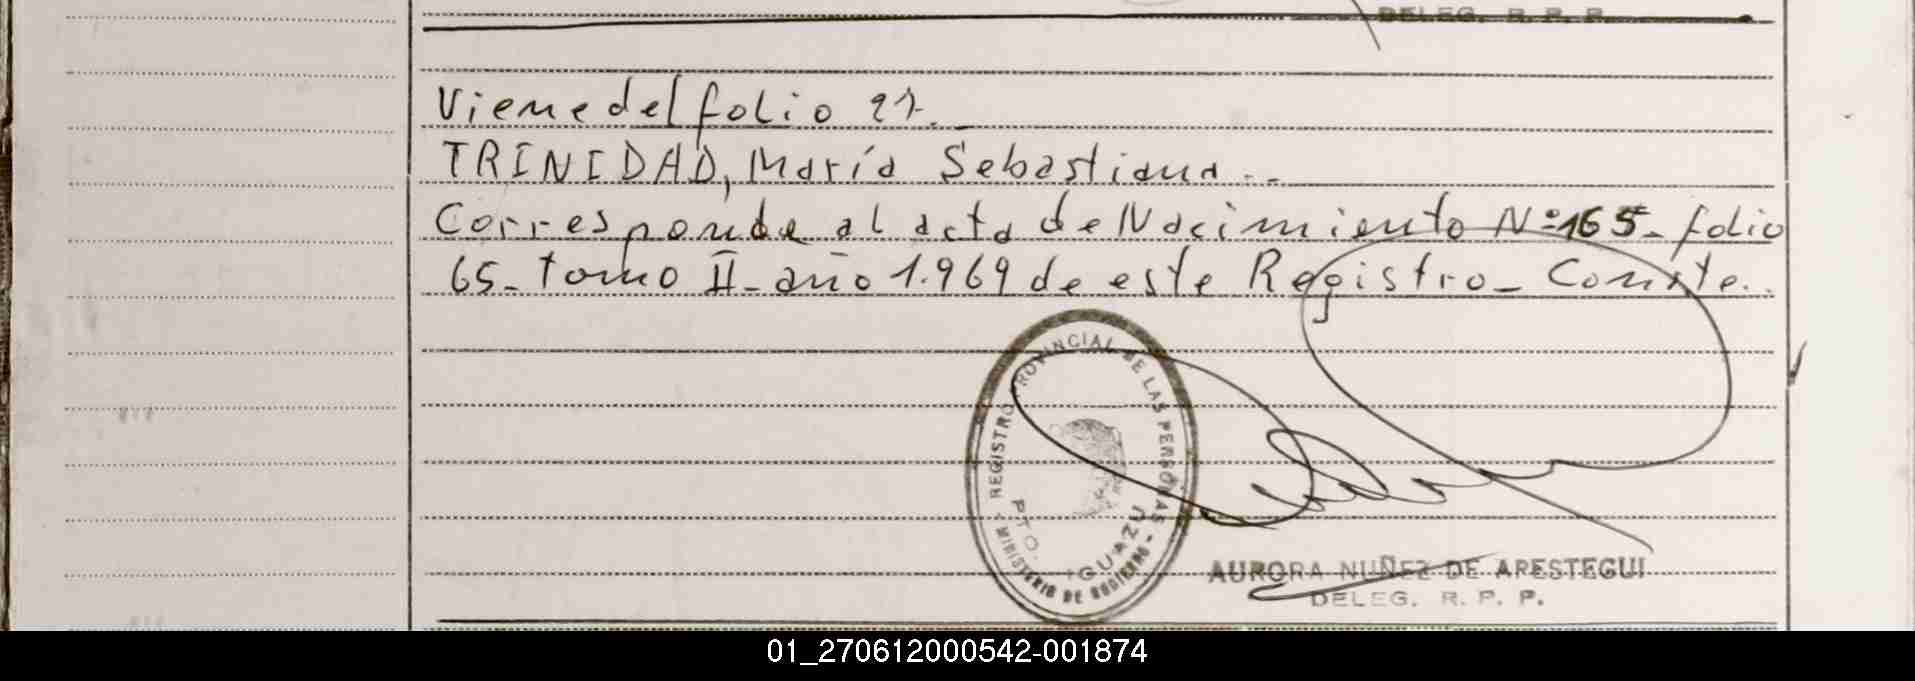 DELEG. R. P. P.
Viene del folio 21.
TRINIDAD, María Sebastiana..
Corresponde al acta de Nacimiento N°165- folio
65- tomo II- año 1.969 de este Registro- Conste..
REGISTRO PROVINCIAL DE LAS PERSONAS - MINISTERIO DE GOBIERNO -
PTO. IGUAZU
AURORA NUÑEZ DE ARESTEGUI
DELEG. R. P. P.
01_270612000542-001874